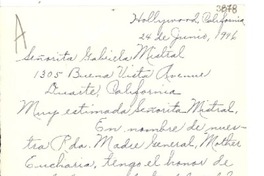 3078
A
Hollywood, California
24 de Junio, 1946
Señorita Gabriela Mistral
1305 Buena Vista Avenue
Duarte, California.
Muy estimada Señorita Mistral,
En nombre de nues-
tra Rda. Madre General, Mother
Eucharia, tengo el honor de